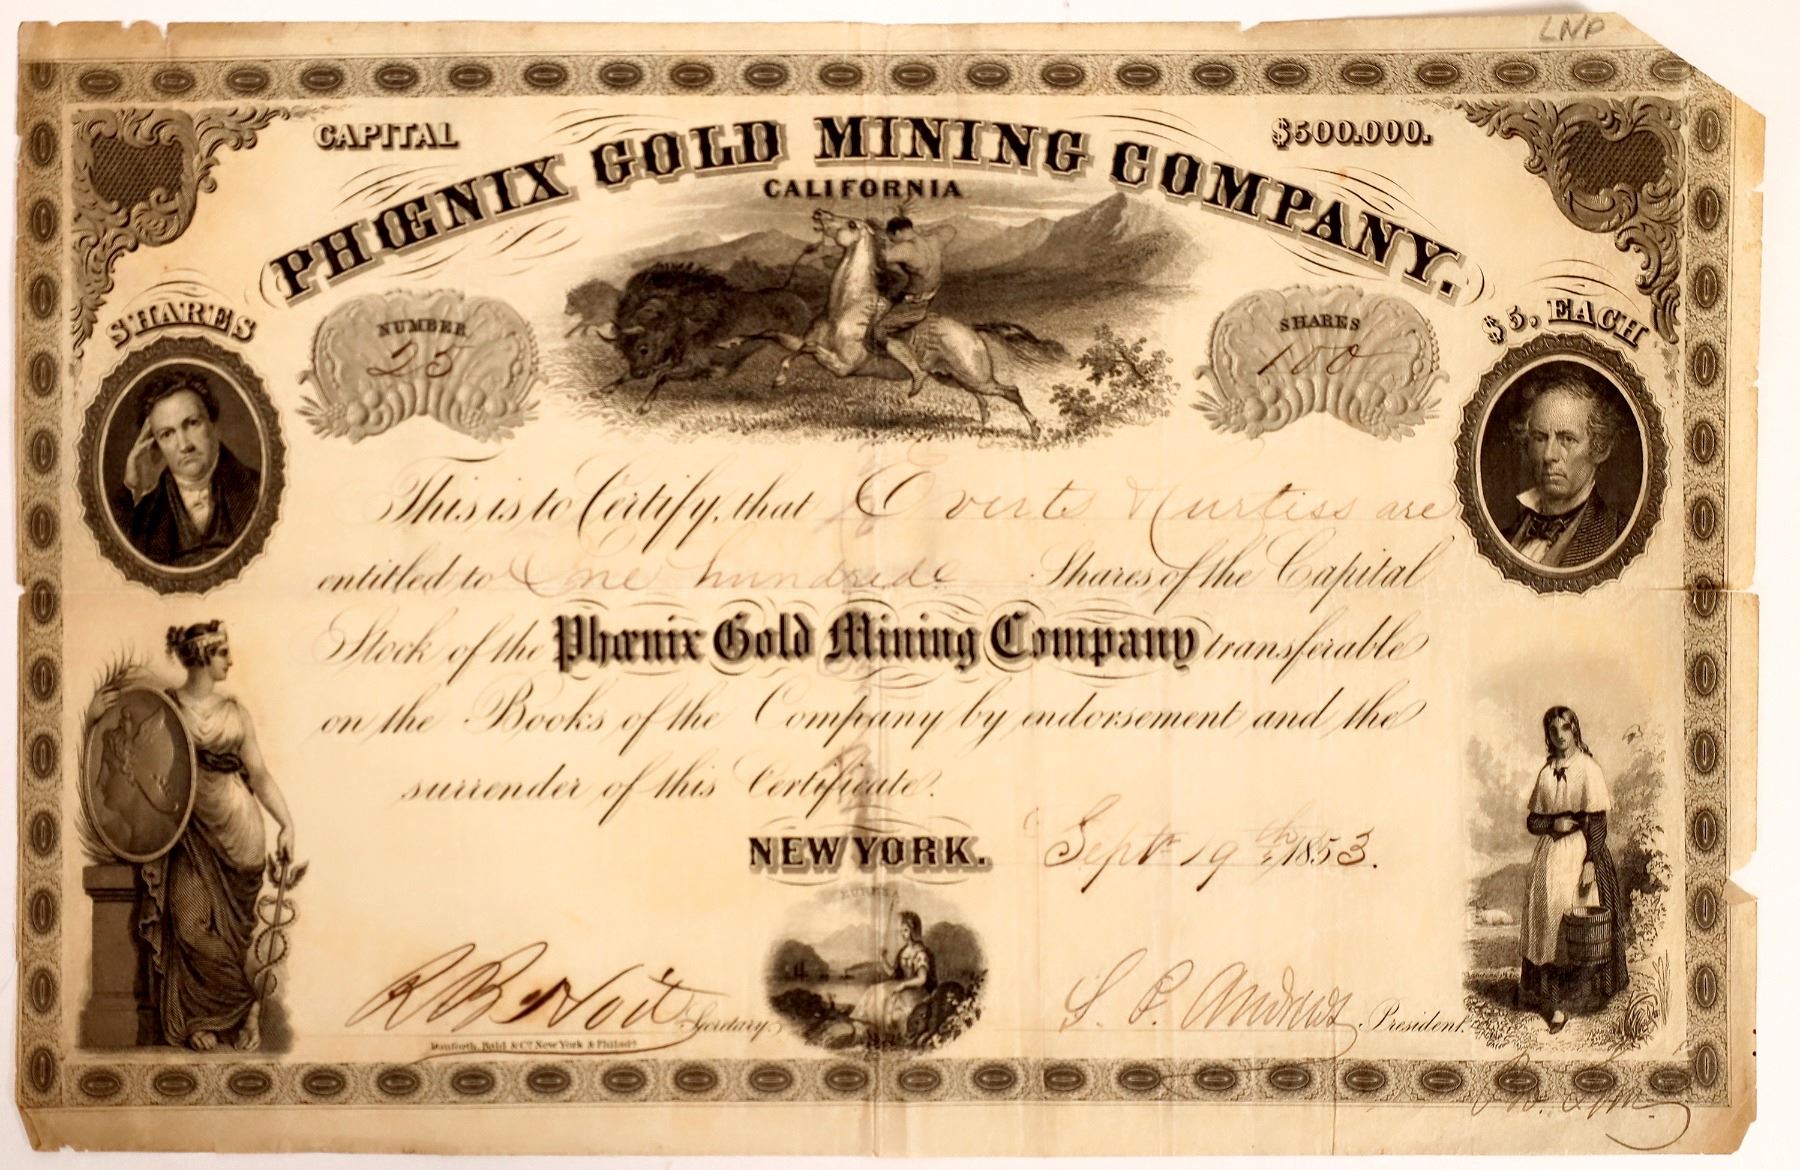 LNP
CAPITAL
$500.000.
PHŒNIX GOLD MINING COMPANY.
CALIFORNIA
SHARES
$5, EACH
NUMBER
25
SHARES
100
This is to Certify, that Everts & Curtiss are
entitled to One hundrede Shares of the Capital
Stock of the Phœnix Gold Mining Company transferable
on the Books of the Company by endorsement and the
surrender of this Certificate.
NEW YORK. Sept 19th, 1853.
EUREKA
R B Hoit Secretary.
S. P. Andrews President.
Danforth, Bald & Co. New York & Philada.